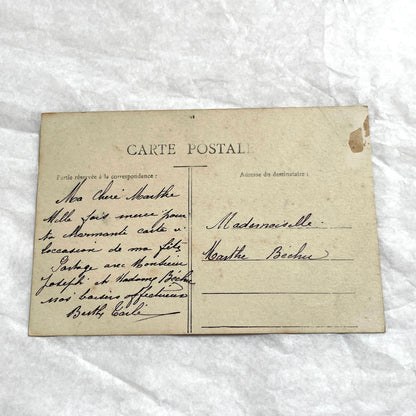 CARTE POSTALE
Partie réservée à la correspondance :
Adresse du destinataire :
Ma Chere Marthe
Mille fois merci pour
ta charmante carte à
l'occasion de ma fête
Partage avec Monsieur
Joseph et Madame Béchu
nos baisers affectueux
Berthe
Mademoiselle
Marthe Béchu